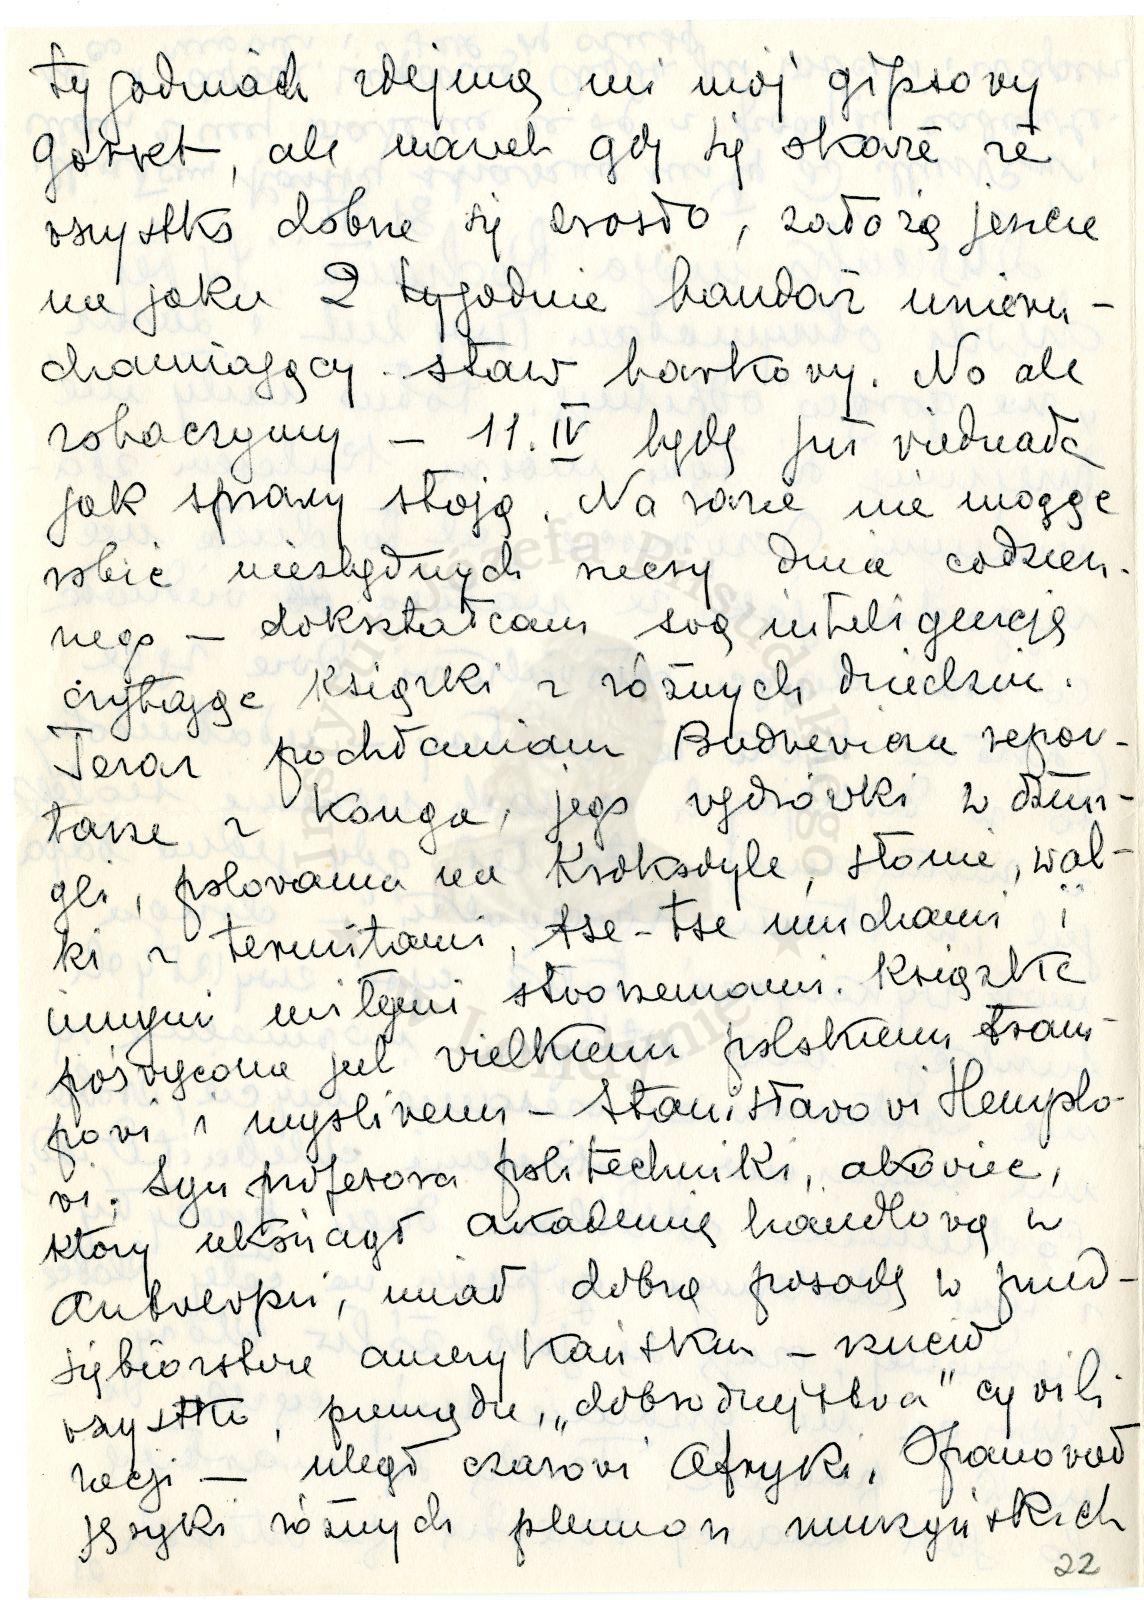 tygodniach zdejmą mi mój gipsowy
gorset, ale nawet gdy się okaże że
wszystko dobrze się zrosło, założą jeszcze
na jakie 2 tygodnie bandaż unieru-
chamiający staw barkowy. No ale
zobaczymy – 11.IV będę już wiedziała
jak sprawy stoją. Na razie nie mogąc
robić niezbędnych rzeczy dnia codzien-
nego – dokształcam swą inteligencję
czytając książki z różnych dziedzin.
Teraz pochłaniam Budrewicza repor-
taże z Konga, jego wędrówki w dżun-
gli, polowania na krokodyle, słonie, wal-
ki z termitami, tse-tse muchami i
innymi miłymi stworzeniami. Książka
poświęcona jest wielkiemu polskiemu tram-
powi i myśliwemu – Stanisławowi Hemplo-
wi. Syn profesora politechniki, akowiec,
który ukończył akademię handlową w
Antwerpii, miał dobrą posadę w przed-
siębiorstwie amerykańskim – rzucił
wszystko, pieniądze, „dobrodziejstwa" cywili
zacji – uległ czarowi Afryki. Opanował
języki różnych plemion murzyńskich
22
Instytut Józefa Piłsudskiego
w Londynie